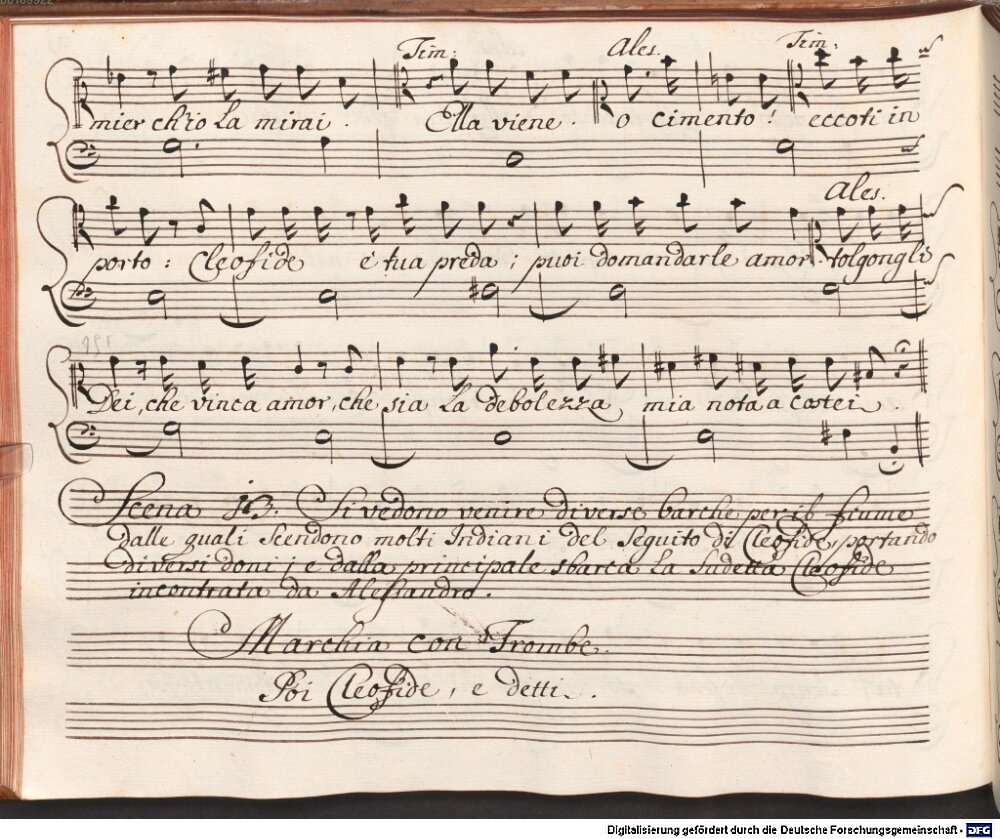 Tim: Ales. Tim:
mier ch'io la mirai. Ella viene. o cimento! eccoti in
Ales.
porto: Cleofide e tua preda; puoi domandarle amor. tolgongli
Dei, che vinca amor, che sia la debolezza mia nota a costei.
Scena 13. Si vedono venire diverse barche per il fiume
dalle quali Scendono molti Indiani del Seguito di Cleofide, portando
diversi doni; e dalla principale sbarca la sudetta Cleofide
incontrata da Alessandro.
Marchia con Trombe.
Poi Cleofide, e detti.
Digitalisierung gefördert durch die Deutsche Forschungsgemeinschaft - DFG